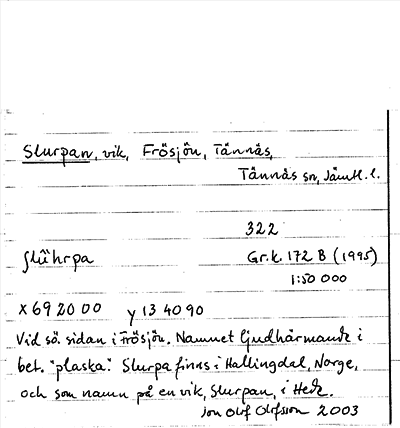 Slurpan, vik, Frösjön, Tännäs,
Tännäs sn, Jämtl. l.
322
ʃlührpa Gr.k. 172 B (1995)
1:50 000
x 69 20 00 y 13 40 90
Vid sö. sidan i Frösjön. Namnet ljudhärmande i
bet. "plaska". Slurpa finns i Hallingdal, Norge,
och som namn på en vik, Slurpan, i Hede.
Jon Olof Olofsson 2003